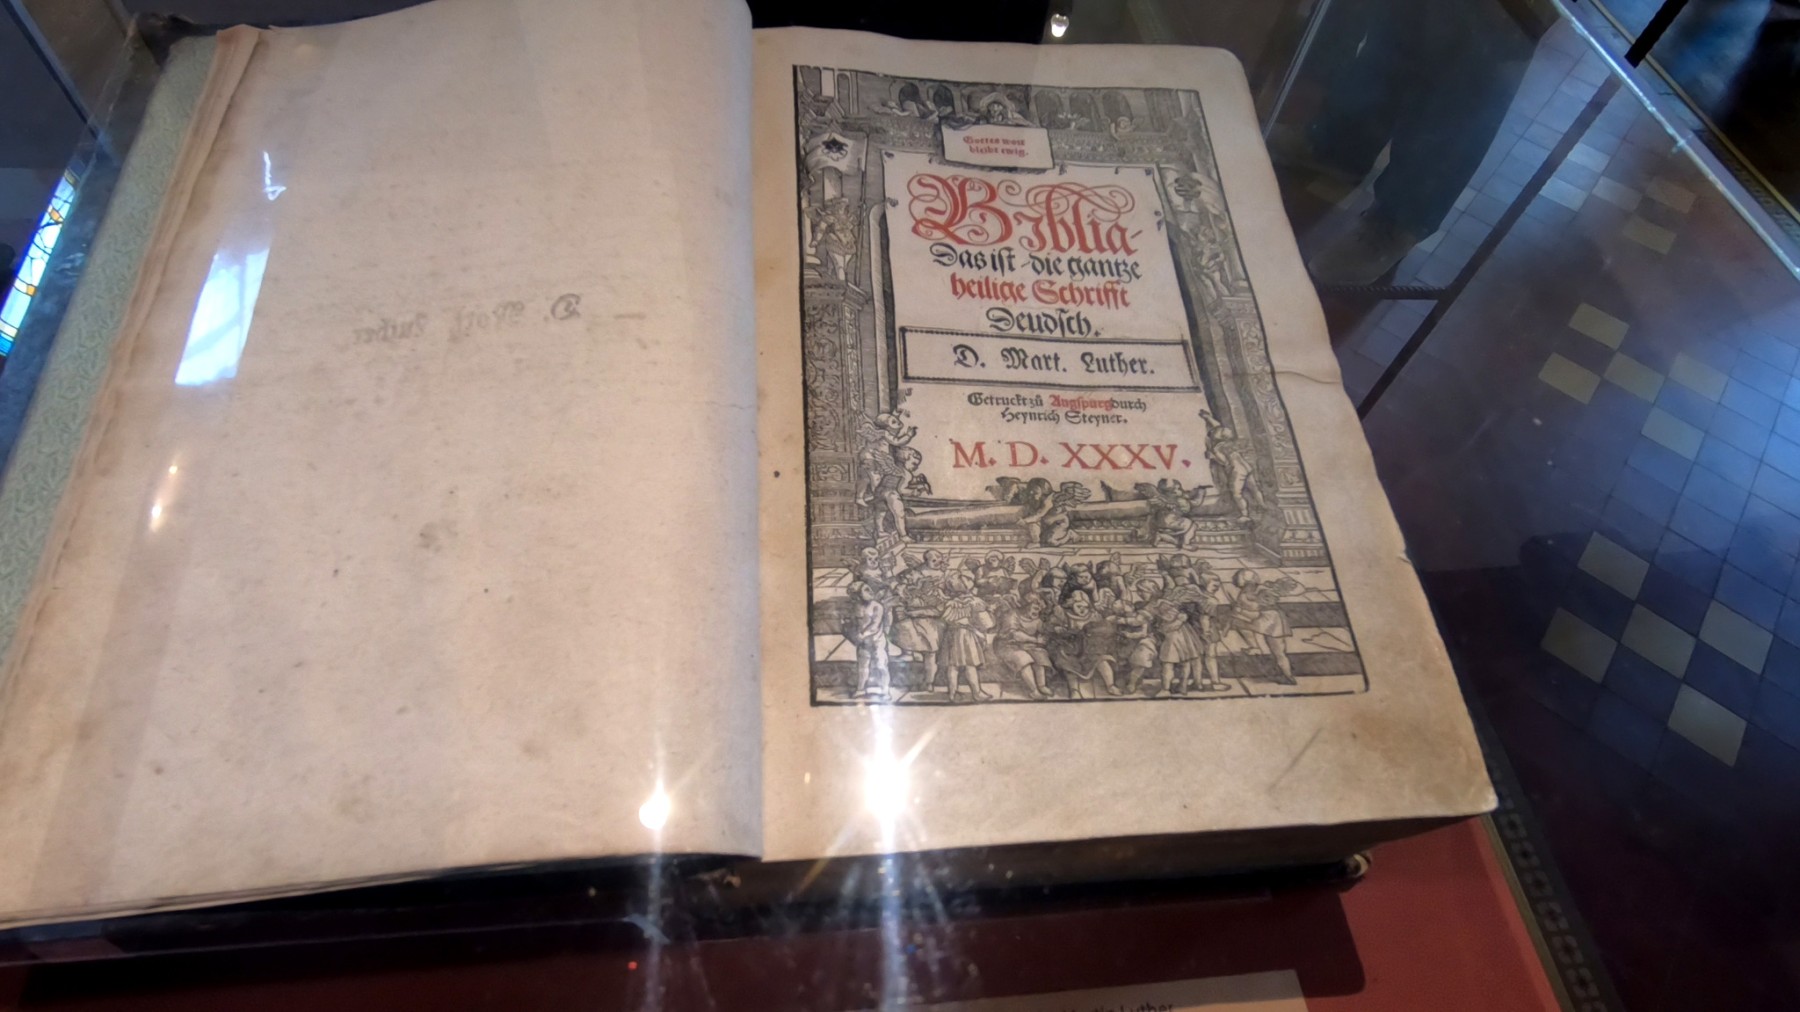 Gottes wort
bleibt ewig.
Biblia
Das ist die gantze
heilige Schrifft
Deudsch.
D. Mart. Luther.
Getruckt zů Augspurg durch
Heynrich Steyner.
M. D. XXXV.
Luther